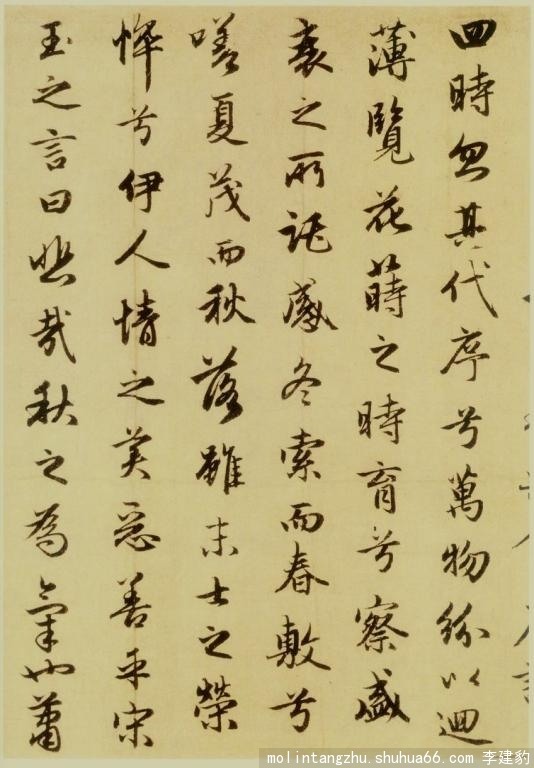 四時忽其代序兮萬物紛以迴
薄覽花蒔之時育兮察盛
衰之所託感冬索而春敷兮
嗟夏茂而秋落雖末士之榮
悴兮伊人情之美惡善乎宋
玉之言曰悲哉秋之為氣也蕭
molintangzhu.shuhua66.com 李建豹